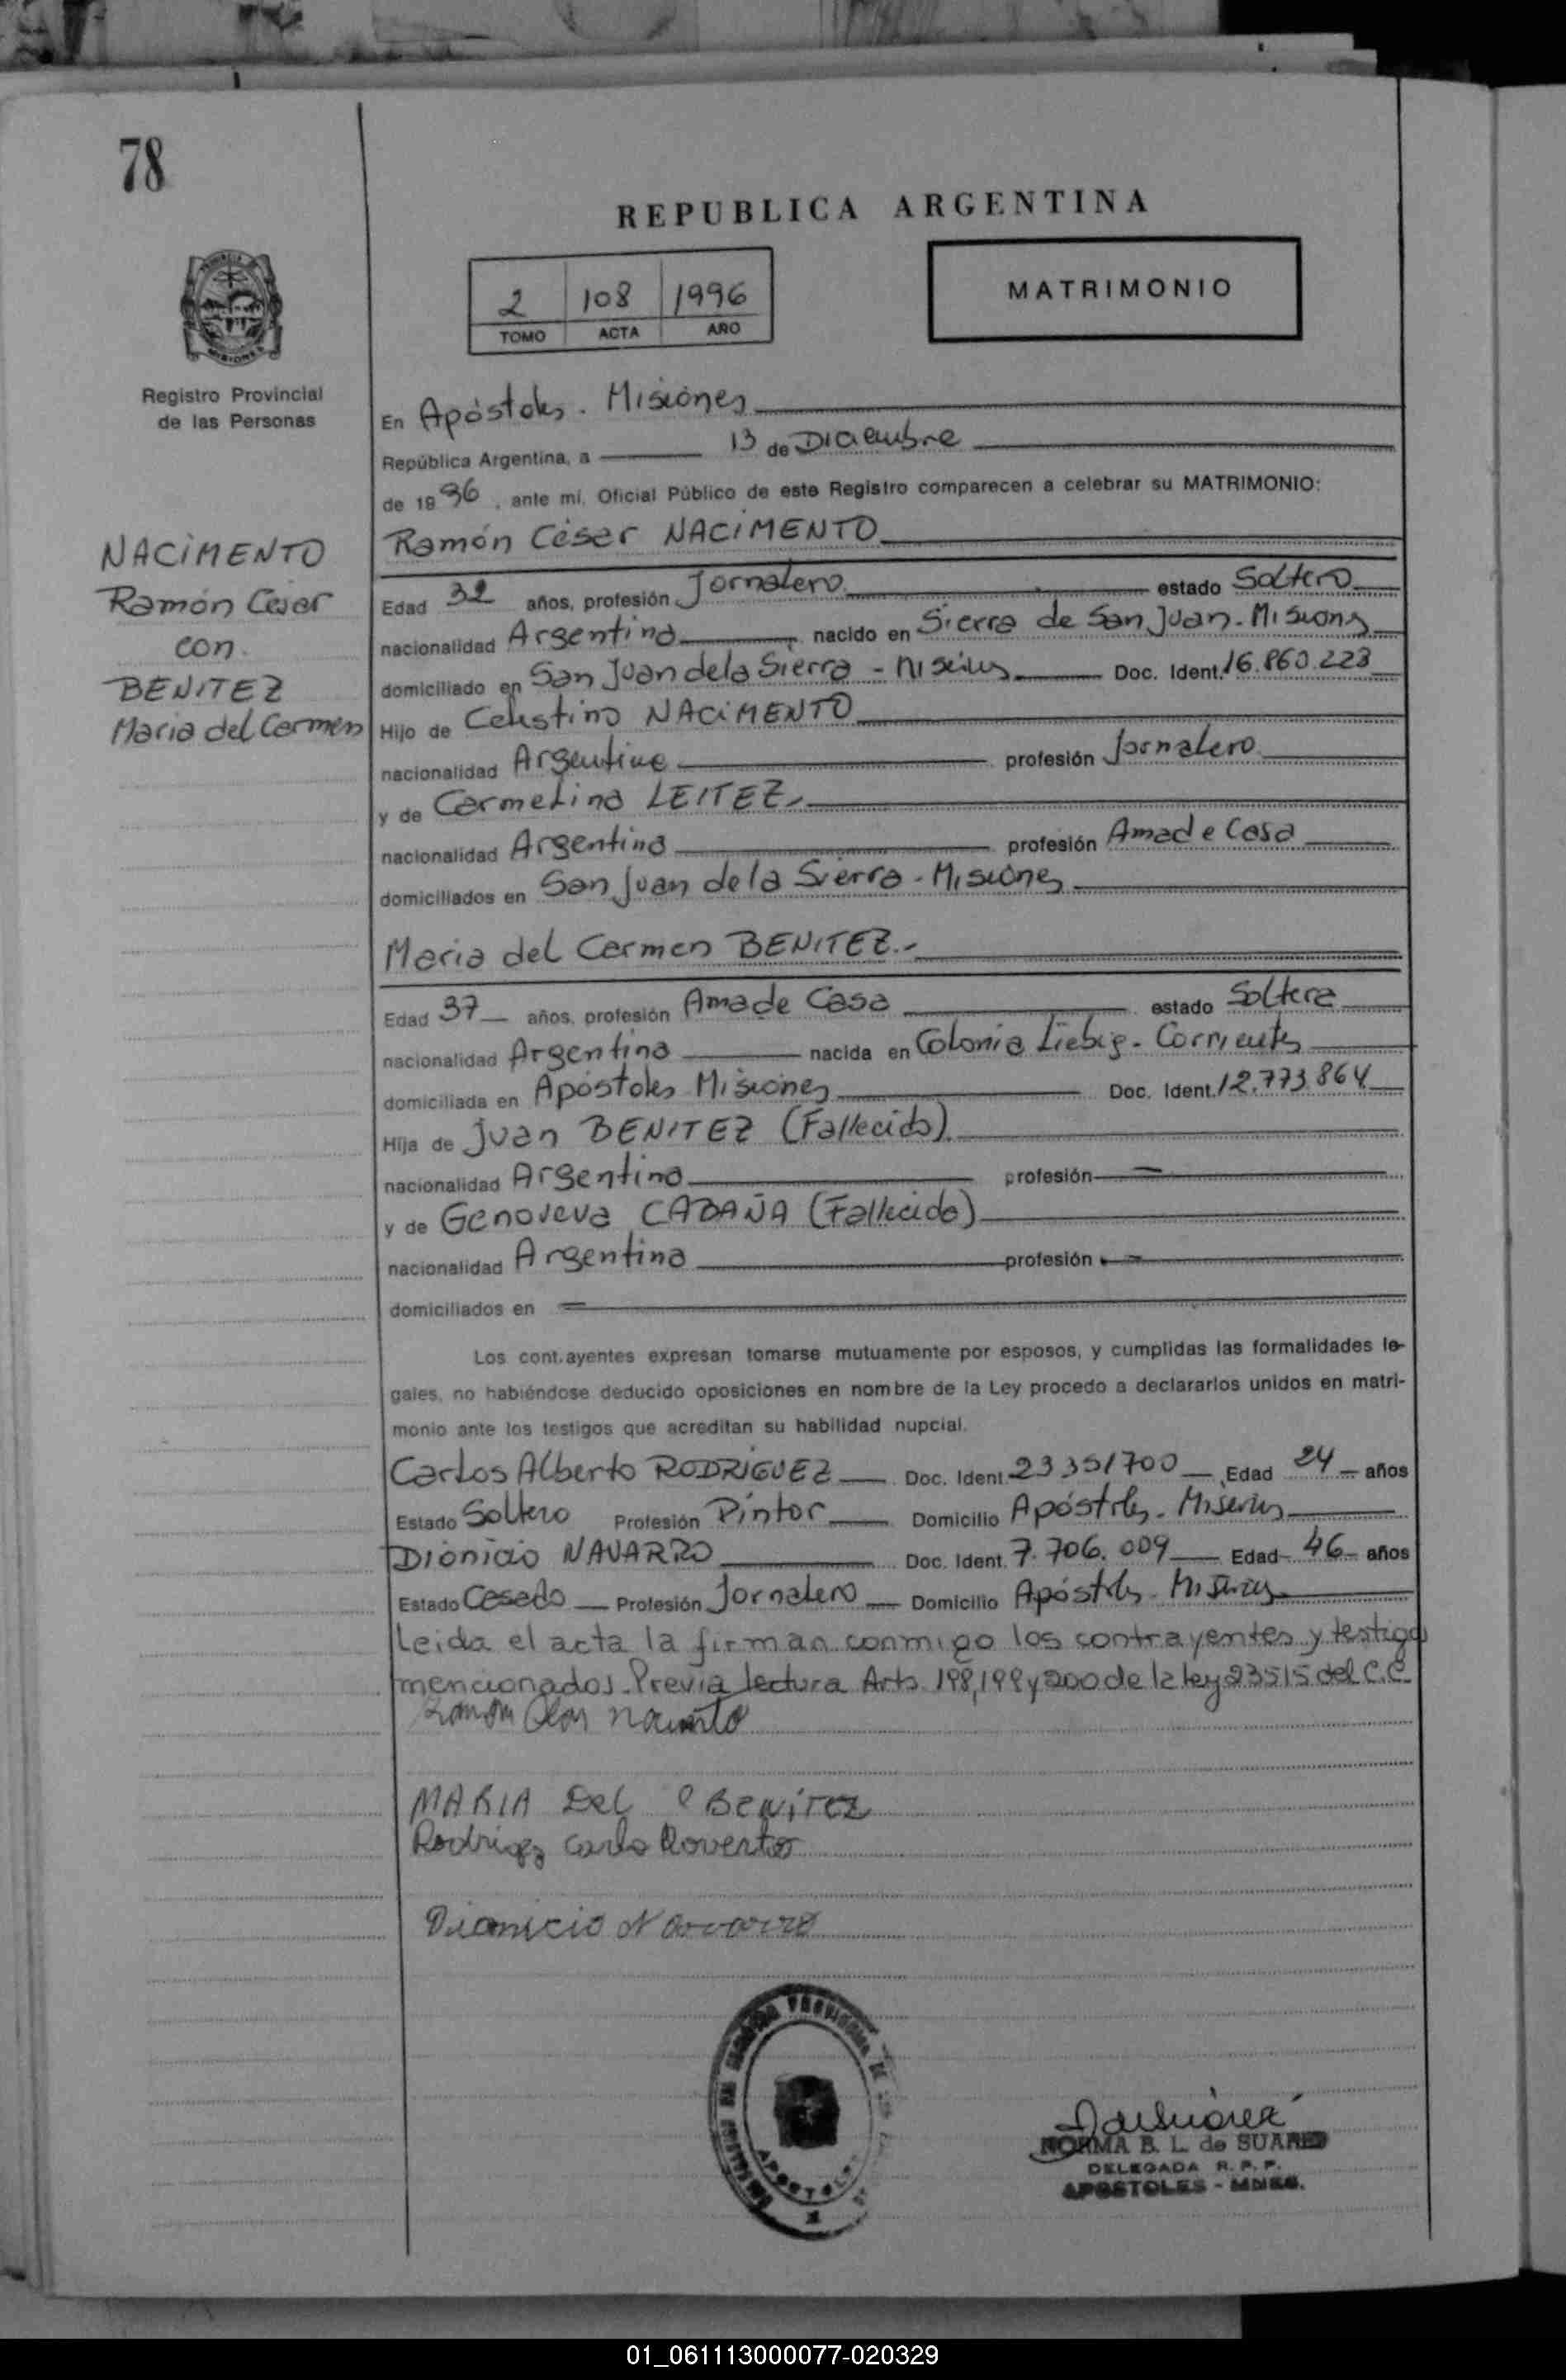 78
REPUBLICA ARGENTINA
2 108 1996
TOMO ACTA AÑO
MATRIMONIO
MISIONES
Registro Provincial
de las Personas
En Apóstoles. Misiones
República Argentina, a 13 de Diciembre
de 1996, ante mí, Oficial Público de este Registro comparecen a celebrar su MATRIMONIO:
NACIMENTO
Ramón Cesar
con
BENITEZ
Maria del Carmen
Ramón César NACIMENTO
Edad 32 años, profesión Jornalero estado Soltero
nacionalidad Argentina nacido en Sierra de San Juan - Misiones
domiciliado en San Juan de la Sierra - Misiones Doc. Ident. 16.860.223
Hijo de Celestino NACIMENTO
nacionalidad Argentina profesión Jornalero
y de Carmelina LEITEZ
nacionalidad Argentina profesión Ama de Casa
domiciliados en San Juan de la Sierra - Misiones
Maria del Carmen BENITEZ.-
Edad 37 años, profesión Ama de Casa estado Soltera
nacionalidad Argentina nacida en Colonia Liebig - Corrientes
domiciliada en Apóstoles Misiones Doc. Ident. 12.773.864
Hija de Juan BENITEZ (Fallecido)
nacionalidad Argentina profesión —
y de Genoveva CABAÑA (Fallecida)
nacionalidad Argentina profesión —
domiciliados en —
Los cont.ayentes expresan tomarse mutuamente por esposos, y cumplidas las formalidades le-
gales, no habiéndose deducido oposiciones en nombre de la Ley procedo a declararlos unidos en matri-
monio ante los testigos que acreditan su habilidad nupcial.
Carlos Alberto RODRIGUEZ Doc. Ident. 23351700 Edad 24 años
Estado Soltero Profesión Pintor Domicilio Apóstoles - Misiones
Dionicio NAVARRO Doc. Ident. 7.706.009 Edad 46 años
Estado Casado Profesión Jornalero Domicilio Apóstoles - Misiones
Leida el acta la firman conmigo los contrayentes y testigos
mencionados. Previa lectura Arts. 198, 199 y 200 de la ley 23515 del C.C.
Ramon Cesar Nacimento
MARIA Del C BENITEZ
Rodrigez Carlo Roverto
Dionicio Navarro
APOSTOLES
NORMA B. L. de SUAREZ
DELEGADA R. P. P.
APOSTOLES - MNES.
01_061113000077-020329